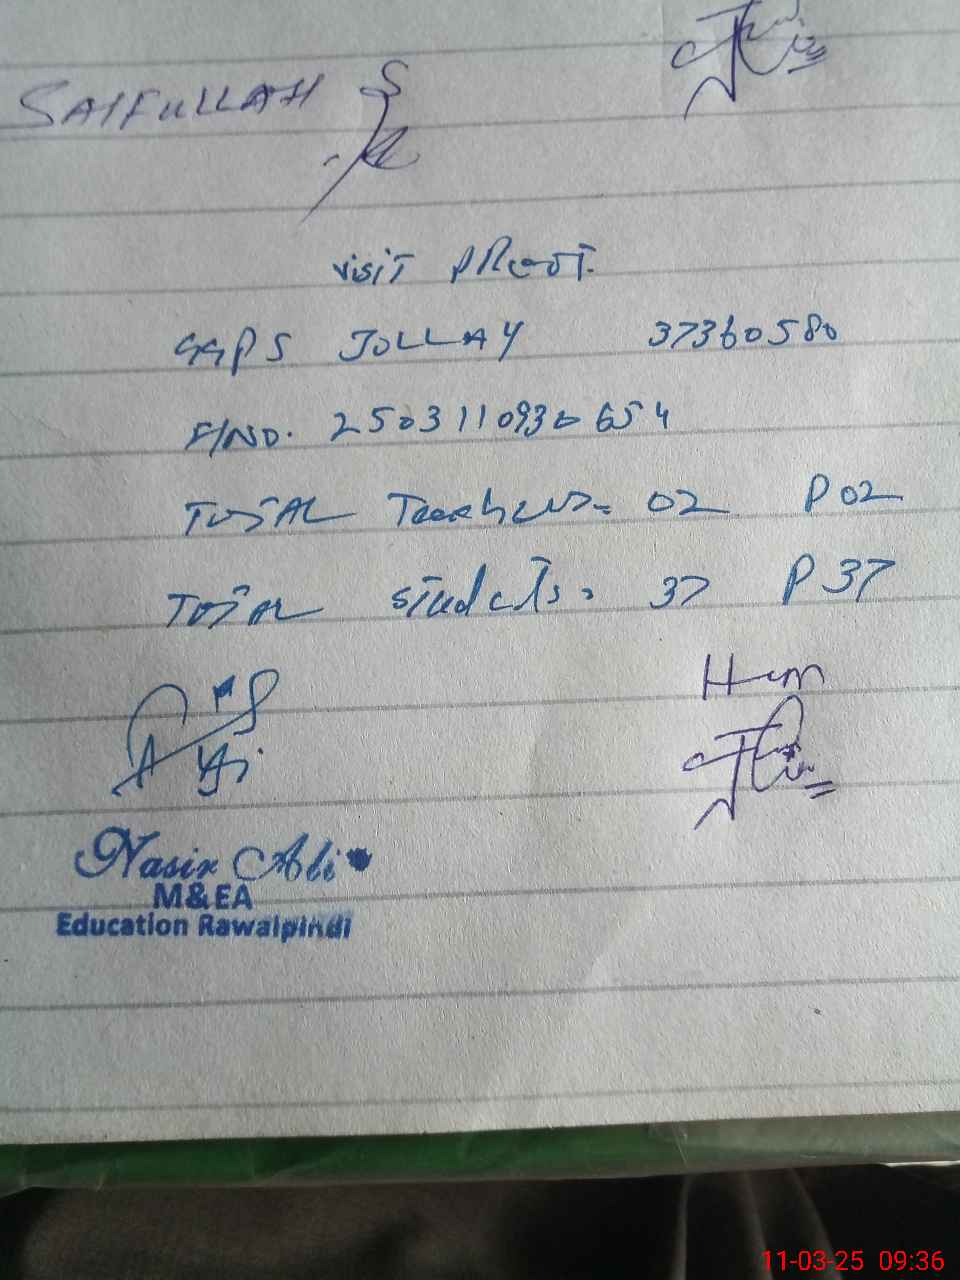 SAIFULLAH
visit PRoof.
GGPS JOLLAY 37360580
F/NO. 2503110930654
TOTAL Teachers= 02 P 02
TOTAL students= 37 P 37
Hm
Nasir Ali
M&EA
Education Rawalpindi
11-03-25 09:36